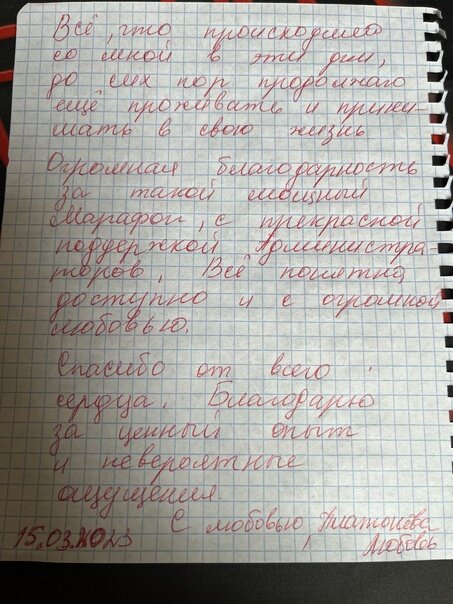 Всё, что происходило
со мной в эти дни,
до сих пор продолжаю
ещё проживать и прини-
мать в свою жизнь
Огромная благодарность
за такой мощный
Марафон, с прекрасной
поддержкой Администра-
торов, Всё понятно
доступно и с огромной
любовью.
Спасибо от всего
сердца. Благодарю
за ценный опыт
и невероятные
ощущения.
С любовью Платонова
15.03.2023 Любовь